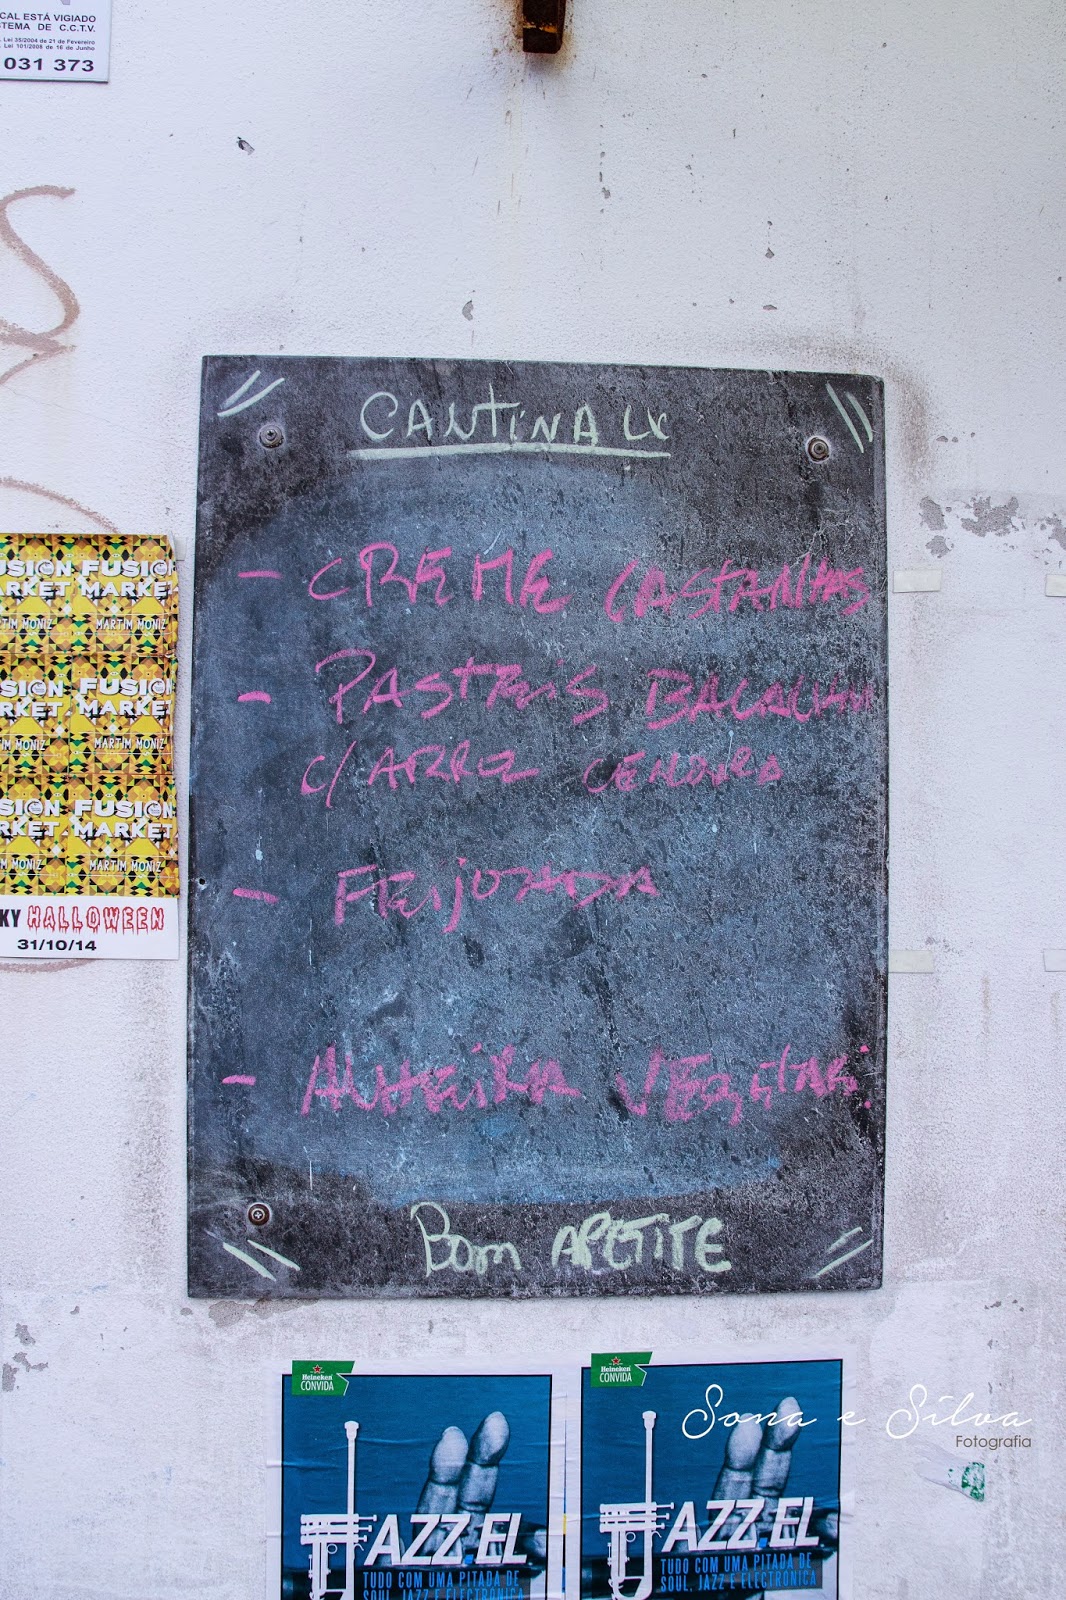 CAL ESTÁ VIGIADO
STEMA DE C.C.T.V.
Lei 35/2004 de 21 de Fevereiro
Lei 101/2008 de 16 de Junho
031 373
CANTINA LX
- CREME CASTANHAS
- PASTEIS BACALHAU
C/ ARROZ CENOURA
- FEIJOADA
- ALHEIRA VEGETAR.
BOM APETITE
USION FUSION
ARKET. MARKET.
TIM MONIZ MARTIM MONIZ
USION FUSION
RKET. MARKET.
IM MONIZ MARTIM MONIZ
SION FUSION
RKET. MARKET.
M MONIZ MARTIM MONIZ
KY HALLOWEEN
31/10/14
Heineken
CONVIDA
JAZZ.EL
TUDO COM UMA PITADA DE
SOUL, JAZZ E ELECTRÓNICA
Heineken
CONVIDA
JAZZ.EL
TUDO COM UMA PITADA DE
SOUL, JAZZ E ELECTRÓNICA
Sona e Silva
Fotografia